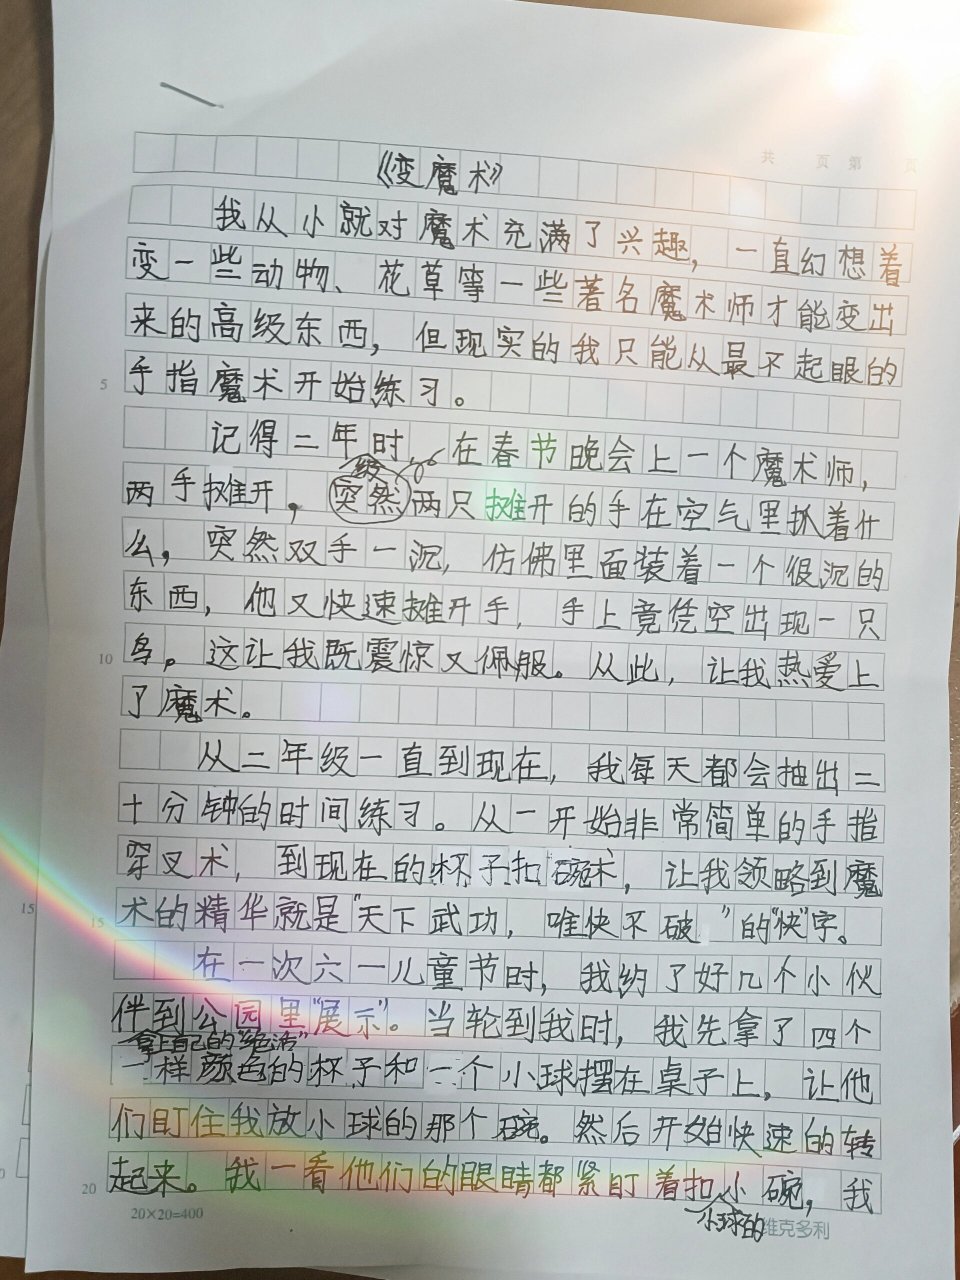 共 页 第 页
《变魔术》
我从小就对魔术充满了兴趣，一直幻想着
变一些动物、花草等一些著名魔术师才能变出
来的高级东西，但现实的我只能从最不起眼的
5 手指魔术开始练习。
记得二年级时，在春节晚会上一个魔术师，
两手摊开，突然两只摊开的手在空气里抓着什
么，突然双手一沉，仿佛里面装着一个很沉的
东西，他又快速摊开手，手上竟凭空出现一只
10 鸟。这让我既震惊又佩服。从此，让我热爱上
了魔术。
从二年级一直到现在，我每天都会抽出二
十分钟的时间练习。从一开始非常简单的手指
穿叉术，到现在的杯子扣碗术，让我领略到魔
15 15 术的精华就是“天下武功，唯快不破”的“快”字。
在一次六一儿童节时，我约了好几个小伙
伴到公园里“展示”。当轮到我时，我先拿了四个
拿上自己的“绝活”
一样颜色的杯子和一个小球摆在桌子上，让他
们盯住我放小球的那个碗。然后开始快速的转
20 起来。我一看他们的眼睛都紧盯着扣小碗，我
小球的
20×20=400 维克多利